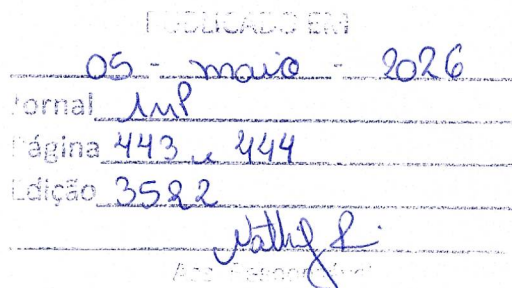 PUBLICADO EM
05 - maio - 2026
Jornal AMP
Página 443 e 444
Edição 3522